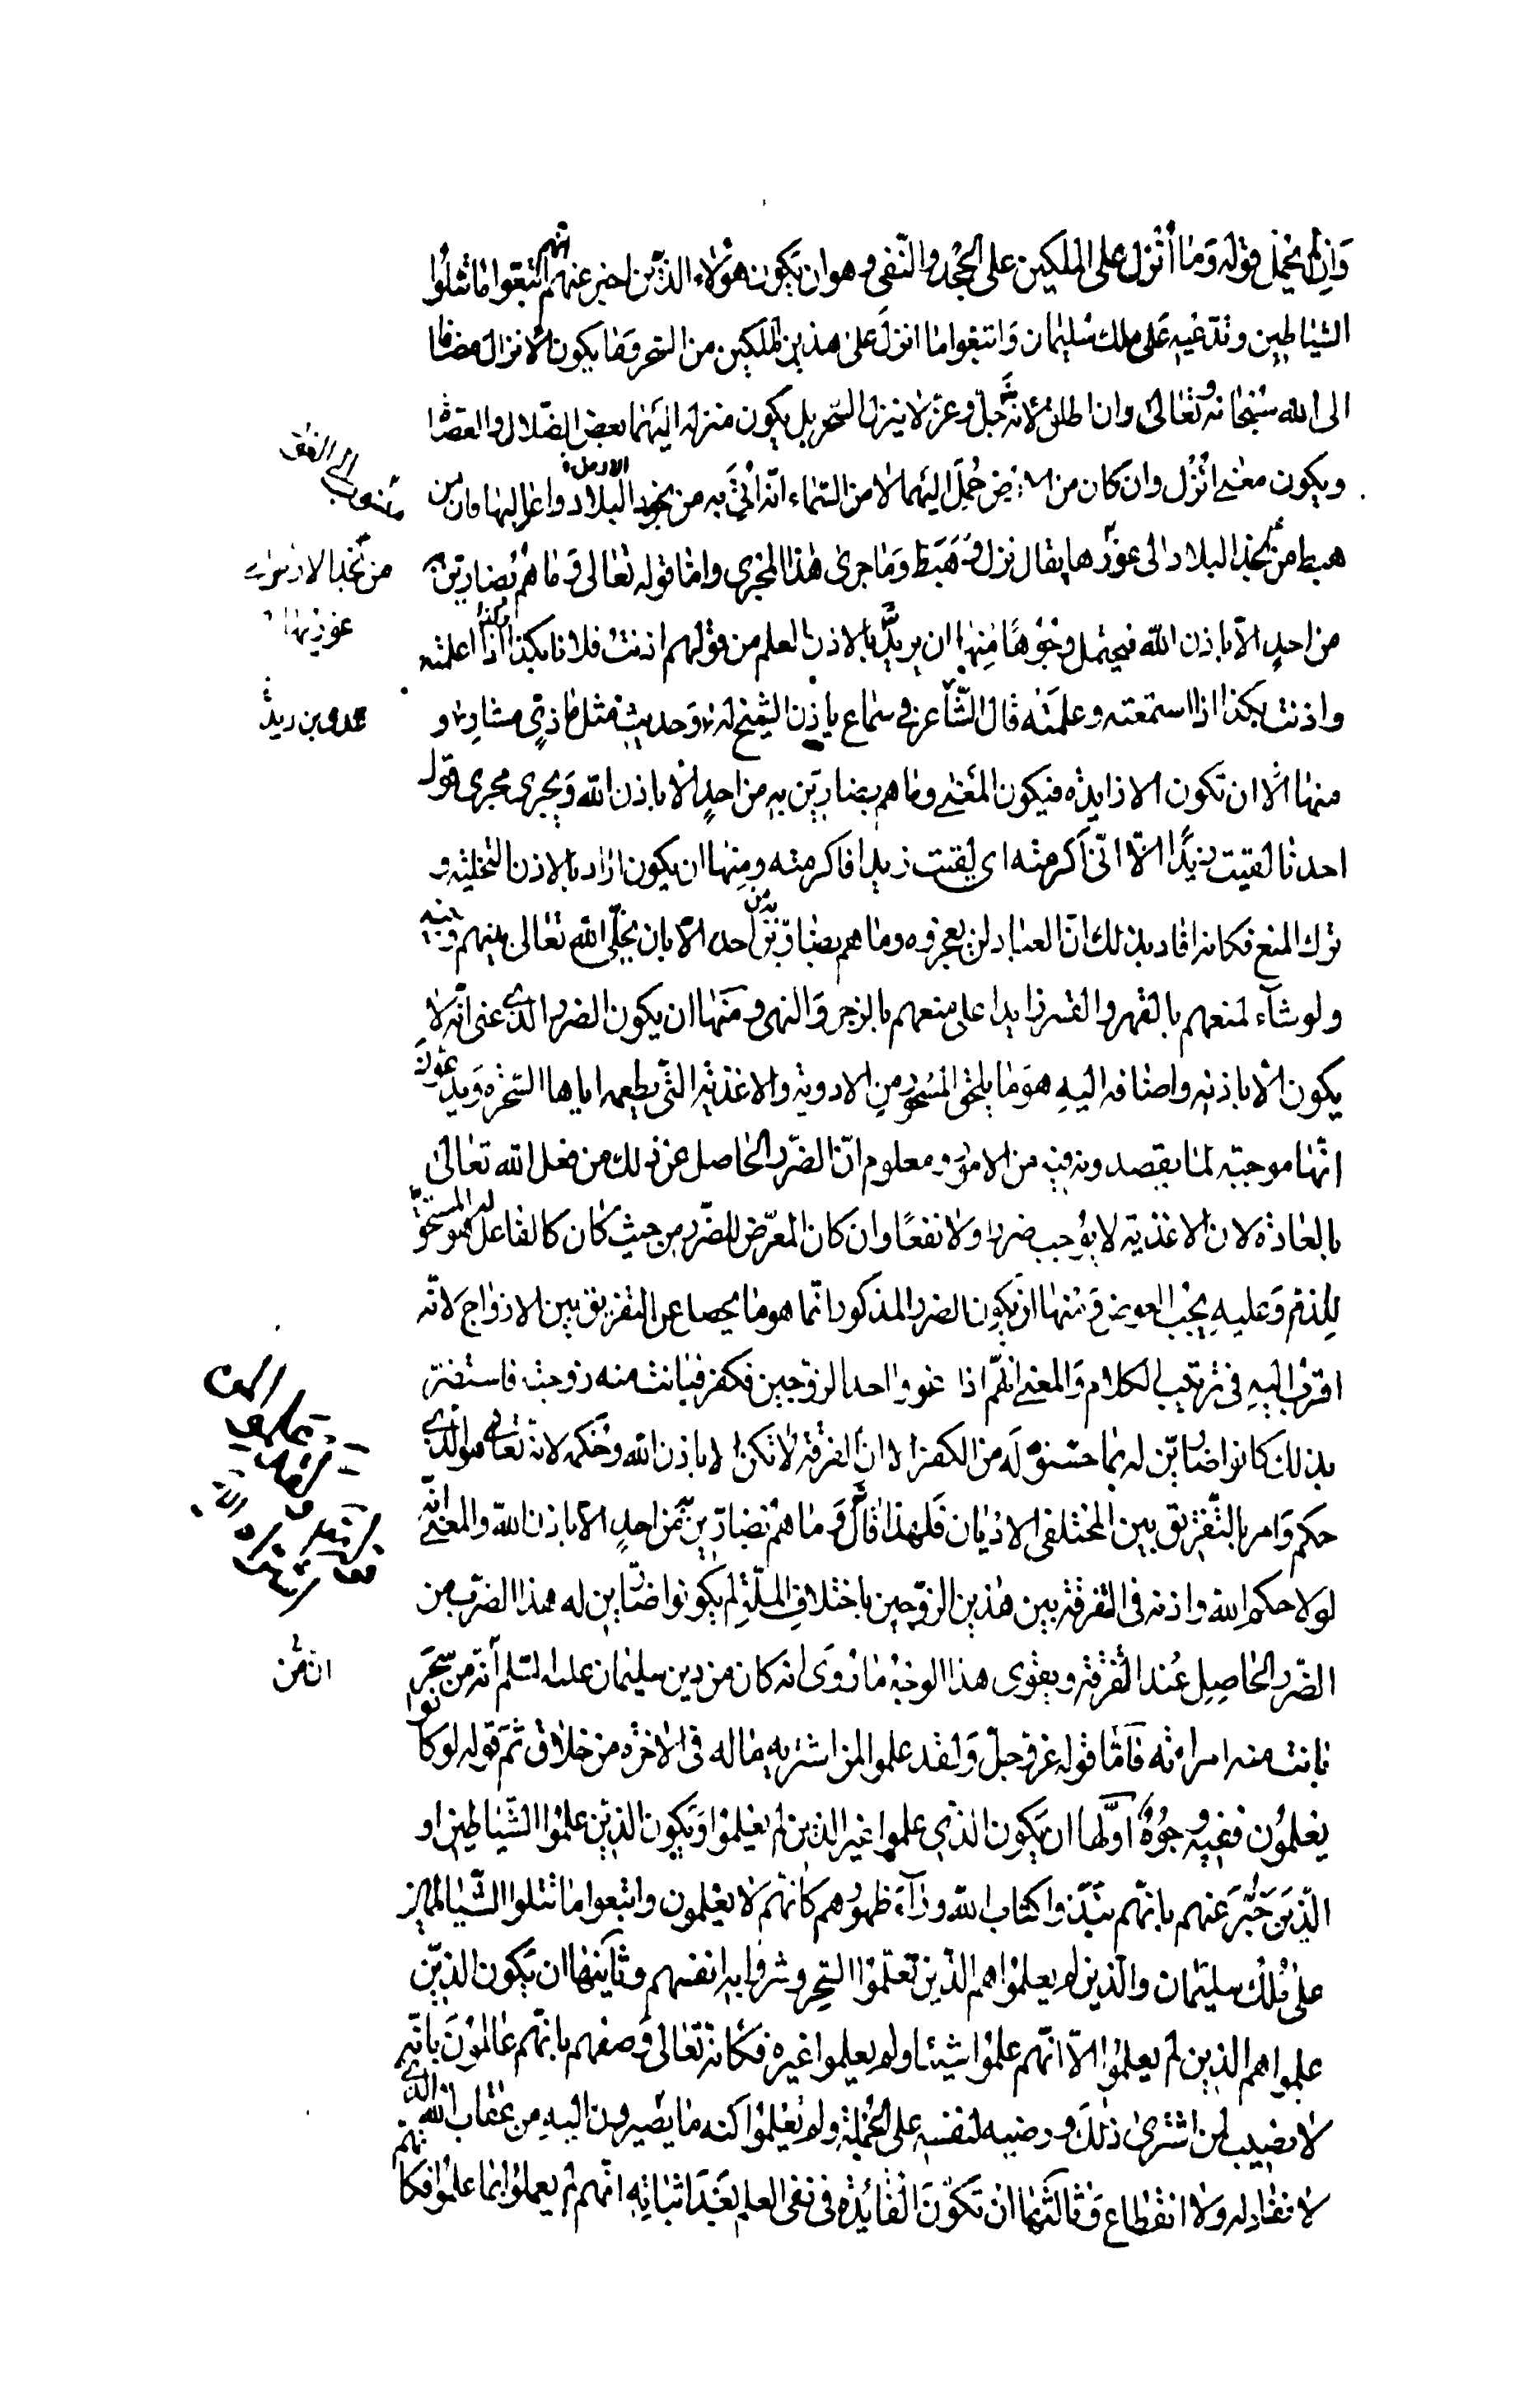 وان لم يحمل قوله وما أنزل على الملكين على الجحد والنفى وهو ان يكون هؤلاء الذين اخبر عنهم انهم اتبعوا ما تتلوا
الشياطين وتدّعيه على ملك سليمان واتبعوا ما انزل على هذين الملكين من السحر وما يكون الانزال مضافا
الى الله سبحانه وتعالى وان اطلق لانه جل وعز لا ينزل السحر بل يكون منزله اليهما بعض الضلال والعصاة
ويكون معنى انزل وان كان من الارض حمل اليهما لا من السماء انه اتى به من نجود البلاد واعاليها فان من
هبط من نجد البلاد الى غورها يقال نزل وهبط وما جرى هذا المجرى واما قوله تعالى وما هم بضارين به
من احد الا باذن الله فيحتمل وجوها منها ان يريد بالاذن العلم من قولهم اذنت فلانا بكذا وكذا اذا اعلمته
واذنت بكذا اذا استمعته وعلمته قال الشاعر في سماع ياذن الشيخ له وحديث مثل ماذي مشار و
منها ان تكون الا زايدة فيكون المعنى وما هم بضارين به من احد الا باذن الله ويجرى مجرى قول
احدنا لقيت زيدا الا انى اكرمته اى لقيت زيدا فاكرمته ومنها ان يكون اراد بالاذن التخلية و
ترك المنع فكانه افاد بذلك ان العباد لن يعجزوه وما هم بضارين به من احد الا بان يخلى الله تعالى بينهم وبينه
ولو شاء لمنعهم بالقهر والقسر زايدا على منعهم بالزجر والنهى ومنها ان يكون الضرر الذى عنى انه لا
يكون الا باذنه واضافه اليه هو ما يلحق المسحور من الادوية والاغذية التى يطعمه اياها السحرة ويدعون
انها موجبة لما يقصدونه فيه من الامور ومعلوم ان الضرر الحاصل عن ذلك من فعل الله تعالى
بالعادة لان الاغذية لا يوجب ضرا ولا نفعا وان كان المعرض للضرر من حيث كان كالفاعل له هو المستحق
للذم وعليه يجب العوض ومنها ان يكون الضرر المذكور انما هو ما يحصل عن التفريق بين الازواج لانه
اقرب اليه في ترتيب الكلام والمعنى انهم اذا غووا احد الزوجين فكفر فبانت منه زوجته فاستضر
بذلك كانوا ضارين له بما حسنوه له من الكفر الا ان الفرقة لا تكن الا باذن الله وحكمه لانه تعالى هو الذى
حكم وامر بالتفريق بين المختلفى الاديان فلهذا قال وما هم بضارين به من احد الا باذن الله والمعنى انه
لولا حكم الله واذنه في التفرقة بين هذين الزوجين باختلاف الملة لم يكونوا ضارين له هذا الضرب من
الضرر الحاصل عند الفرقة ويقوى هذا الوجه ما روى انه كان من دين سليمان عليه السلم انه من سحر
بانت منه امراته فاما قوله عز وجل ولقد علموا لمن اشتريه ما له في الاخرة من خلاق ثم قوله لو كانوا
يعلمون ففيه وجوه اولها ان يكون الذى علموا غير الذين لم يعلموا ويكون الذين علموا الشياطين او
الذين خبر عنهم بانهم نبذوا كتاب الله وراء ظهورهم كانهم لا يعلمون واتبعوا ما تتلوا الشياطين
على ملك سليمان والذين لم يعلموا هم الذين تعلموا السحر وشروا به انفسهم وثانيها ان يكون الذين
علموا هم الذين لم يعلموا الا انهم علموا شيئا ولم يعلموا غيره فكانه تعالى وصفهم بانهم عالمون بانه
لا نصيب لمن اشترى ذلك ورضيه لنفسه على الجملة ولم يعلموا كنه ما يصيرون اليه من عقاب الله الذى
لا نفاد له ولا انقطاع وثالثها ان تكون الفائدة في نفى العلم بعد اثباته انهم لم يعملوا بما علموا فكانهم
من نجد الارض الى
غورها
عدى بن زيد
ان من